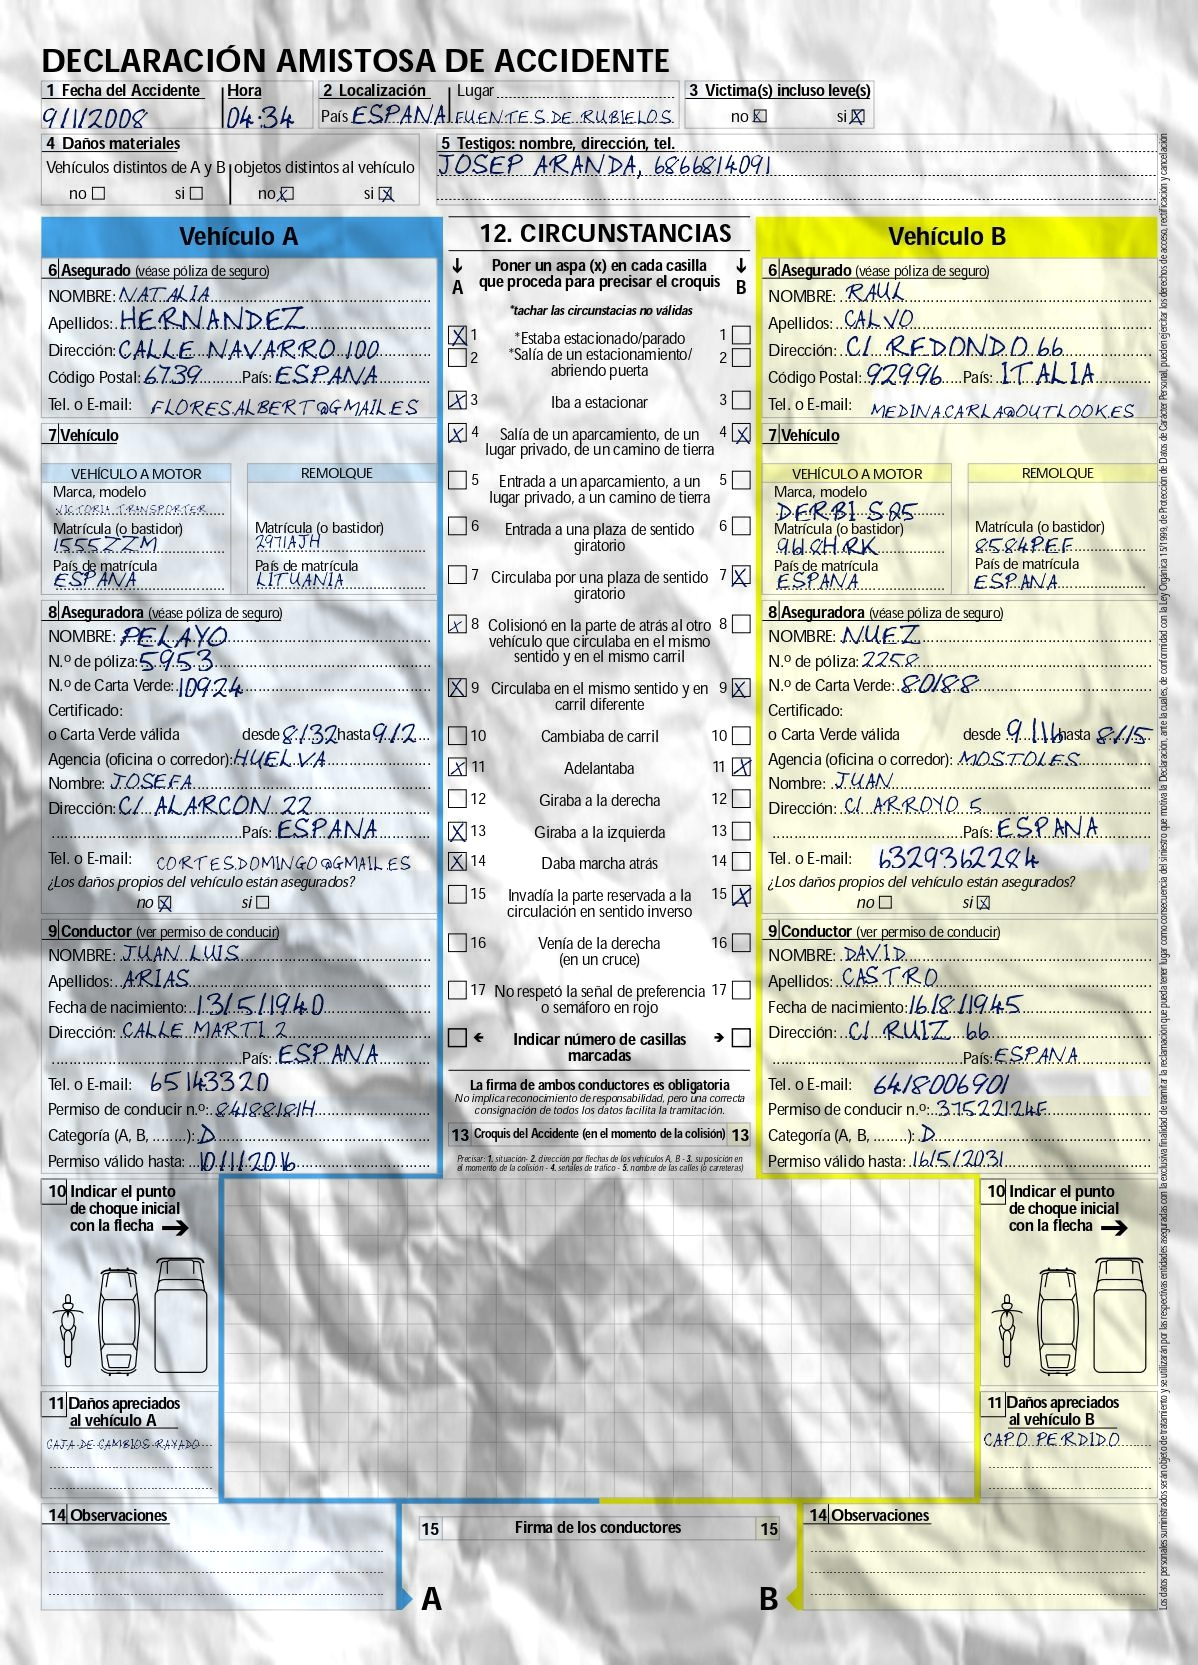 DECLARACIÓN AMISTOSA DE ACCIDENTE
1 Fecha del Accidente Hora 2 Localización Lugar 3 Victima(s) incluso leve(s)
9/1/2008 04:34 País ESPANA FUENTES DE RUBIELOS no X si X
4 Daños materiales 5 Testigos: nombre, dirección, tel.
Vehículos distintos de A y B objetos distintos al vehículo JOSEP ARANDA, 6866814091
no si no X si X
Vehículo A
6 Asegurado (véase póliza de seguro)
NOMBRE: NATALIA
Apellidos: HERNANDEZ
Dirección: CALLE NAVARRO 100
Código Postal: 6739 País: ESPANA
Tel. o E-mail: FLORESALBERT@GMAIL.ES
7 Vehículo
VEHÍCULO A MOTOR REMOLQUE
Marca, modelo
VICTORIA TRANSPORTER
Matrícula (o bastidor) Matrícula (o bastidor)
1555ZZM 2971AJH
País de matrícula País de matrícula
ESPANA LITUANIA
8 Aseguradora (véase póliza de seguro)
NOMBRE: PELAYO
N.º de póliza: 5953
N.º de Carta Verde: 10924
Certificado:
o Carta Verde válida desde 8/32 hasta 9/2
Agencia (oficina o corredor): HUELVA
Nombre: JOSEFA
Dirección: C/ ALARCON 22
País: ESPANA
Tel. o E-mail: CORTESDOMINGO@GMAIL.ES
¿Los daños propios del vehículo están asegurados?
no X si
9 Conductor (ver permiso de conducir)
NOMBRE: JUAN LUIS
Apellidos: ARIAS
Fecha de nacimiento: 13/5/1940
Dirección: CALLE MARTI 2
País: ESPANA
Tel. o E-mail: 65143320
Permiso de conducir n.º: 84188181H
Categoría (A, B, ........): D
Permiso válido hasta: 10/1/2016
12. CIRCUNSTANCIAS
A Poner un aspa (x) en cada casilla B
que proceda para precisar el croquis
*tachar las circunstacias no válidas
X 1 *Estaba estacionado/parado 1
2 *Salía de un estacionamiento/ 2
abriendo puerta
X 3 Iba a estacionar 3
X 4 Salía de un aparcamiento, de un 4 X
lugar privado, de un camino de tierra
5 Entrada a un aparcamiento, a un 5
lugar privado, a un camino de tierra
6 Entrada a una plaza de sentido 6
giratorio
7 Circulaba por una plaza de sentido 7 X
giratorio
X 8 Colisionó en la parte de atrás al otro 8
vehículo que circulaba en el mismo
sentido y en el mismo carril
X 9 Circulaba en el mismo sentido y en 9 X
carril diferente
10 Cambiaba de carril 10
X 11 Adelantaba 11 X
12 Giraba a la derecha 12
X 13 Giraba a la izquierda 13
X 14 Daba marcha atrás 14
15 Invadía la parte reservada a la 15 X
circulación en sentido inverso
16 Venía de la derecha 16
(en un cruce)
17 No respetó la señal de preferencia 17
o semáforo en rojo
Indicar número de casillas
marcadas
La firma de ambos conductores es obligatoria
No implica reconocimiento de responsabilidad, pero una correcta
consignación de todos los datos facilita la tramitación.
13 Croquis del Accidente (en el momento de la colisión) 13
Precisar: 1. situación- 2. dirección por flechas de los vehículos A, B - 3. su posición en
el momento de la colisión - 4. señales de tráfico - 5. nombre de las calles (o carreteras)
Vehículo B
6 Asegurado (véase póliza de seguro)
NOMBRE: RAUL
Apellidos: CALVO
Dirección: C/ REDONDO 66
Código Postal: 92996 País: ITALIA
Tel. o E-mail: MEDINACARLA@OUTLOOK.ES
7 Vehículo
VEHÍCULO A MOTOR REMOLQUE
Marca, modelo
DERBI SQ5
Matrícula (o bastidor) Matrícula (o bastidor)
9618HRK 8584PEF
País de matrícula País de matrícula
ESPANA ESPANA
8 Aseguradora (véase póliza de seguro)
NOMBRE: NUEZ
N.º de póliza: 2258
N.º de Carta Verde: 80188
Certificado:
o Carta Verde válida desde 9/16 hasta 8/15
Agencia (oficina o corredor): MOSTOLES
Nombre: JUAN
Dirección: C/ ARROYO 5
País: ESPANA
Tel. o E-mail: 6329362284
¿Los daños propios del vehículo están asegurados?
no si X
9 Conductor (ver permiso de conducir)
NOMBRE: DAVID
Apellidos: CASTRO
Fecha de nacimiento: 16/8/1945
Dirección: C/ RUIZ 66
País: ESPANA
Tel. o E-mail: 6418006901
Permiso de conducir n.º: 37522124F
Categoría (A, B, ........): D
Permiso válido hasta: 16/5/2031
10 Indicar el punto
de choque inicial
con la flecha
11 Daños apreciados
al vehículo A
CAJA DE CAMBIOS RAYADO
10 Indicar el punto
de choque inicial
con la flecha
11 Daños apreciados
al vehículo B
CAPO PERDIDO
14 Observaciones
15 Firma de los conductores 15
A B
14 Observaciones
Los datos personales suministrados serán objeto de tratamiento y se utilizarán por las respectivas entidades aseguradas con la exclusiva finalidad de tramitar la reclamación que pueda tener lugar como consecuencia del siniestro que motiva la Declaración, ante la cuales, de conformidad con la Ley Orgánica 15/1999, de Protección de Datos de Carácter Personal, pueden ejercitar los derechos de acceso, rectificación y cancelación